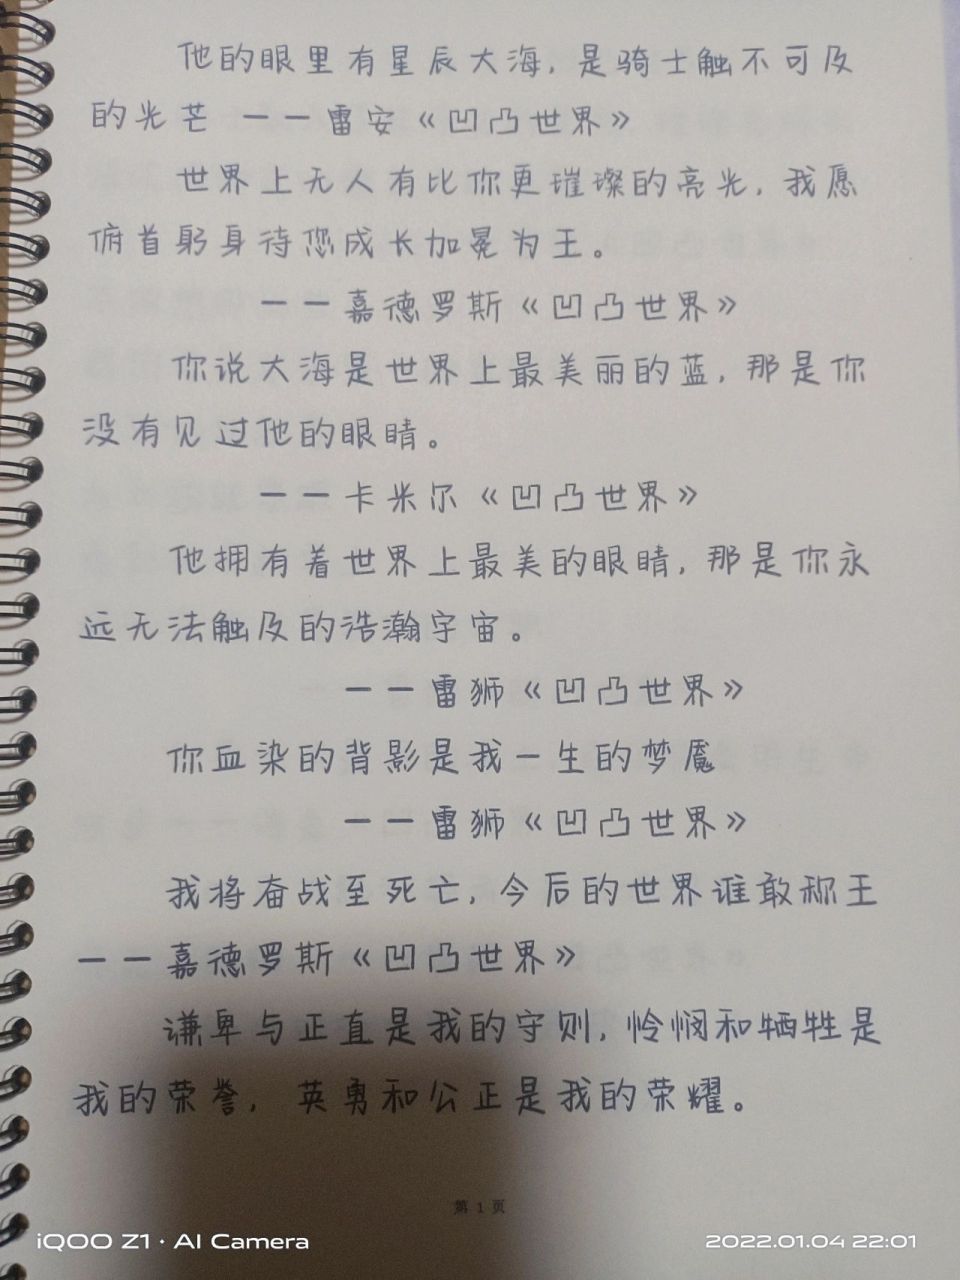 他的眼里有星辰大海,是骑士触不可及
的光芒 ——雷安《凹凸世界》
世界上无人有比你更璀璨的亮光,我愿
俯首躬身待您成长加冕为王。
——嘉德罗斯《凹凸世界》
你说大海是世界上最美丽的蓝,那是你
没有见过他的眼睛。
——卡米尔《凹凸世界》
他拥有着世界上最美的眼睛,那是你永
远无法触及的浩瀚宇宙。
——雷狮《凹凸世界》
你血染的背影是我一生的梦魇
——雷狮《凹凸世界》
我将奋战至死亡,今后的世界谁敢称王
——嘉德罗斯《凹凸世界》
谦卑与正直是我的守则,怜悯和牺牲是
我的荣誉,英勇和公正是我的荣耀。
第 1 页
iQOO Z1 · AI Camera
2022.01.04 22:01